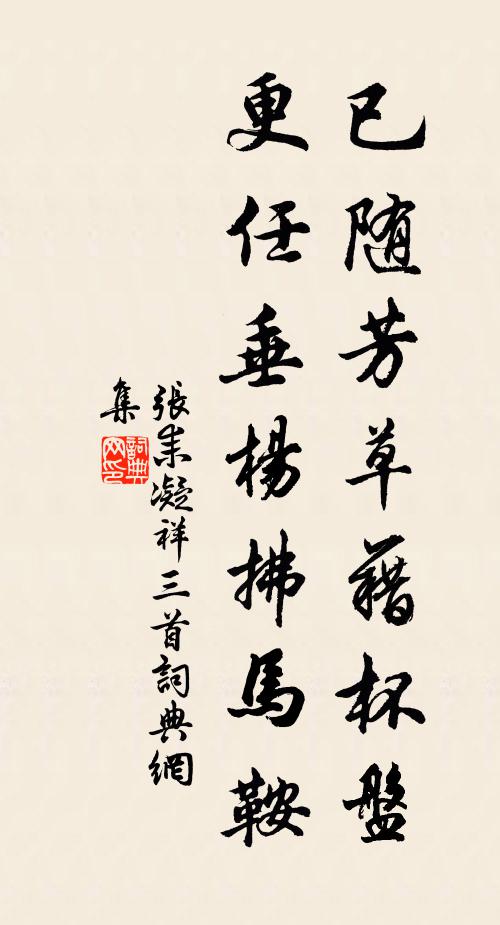 已随芳草藉杯盤
更任垂楊拂馬鞍
張耒凝祥三首詞典網
集
詞典网印